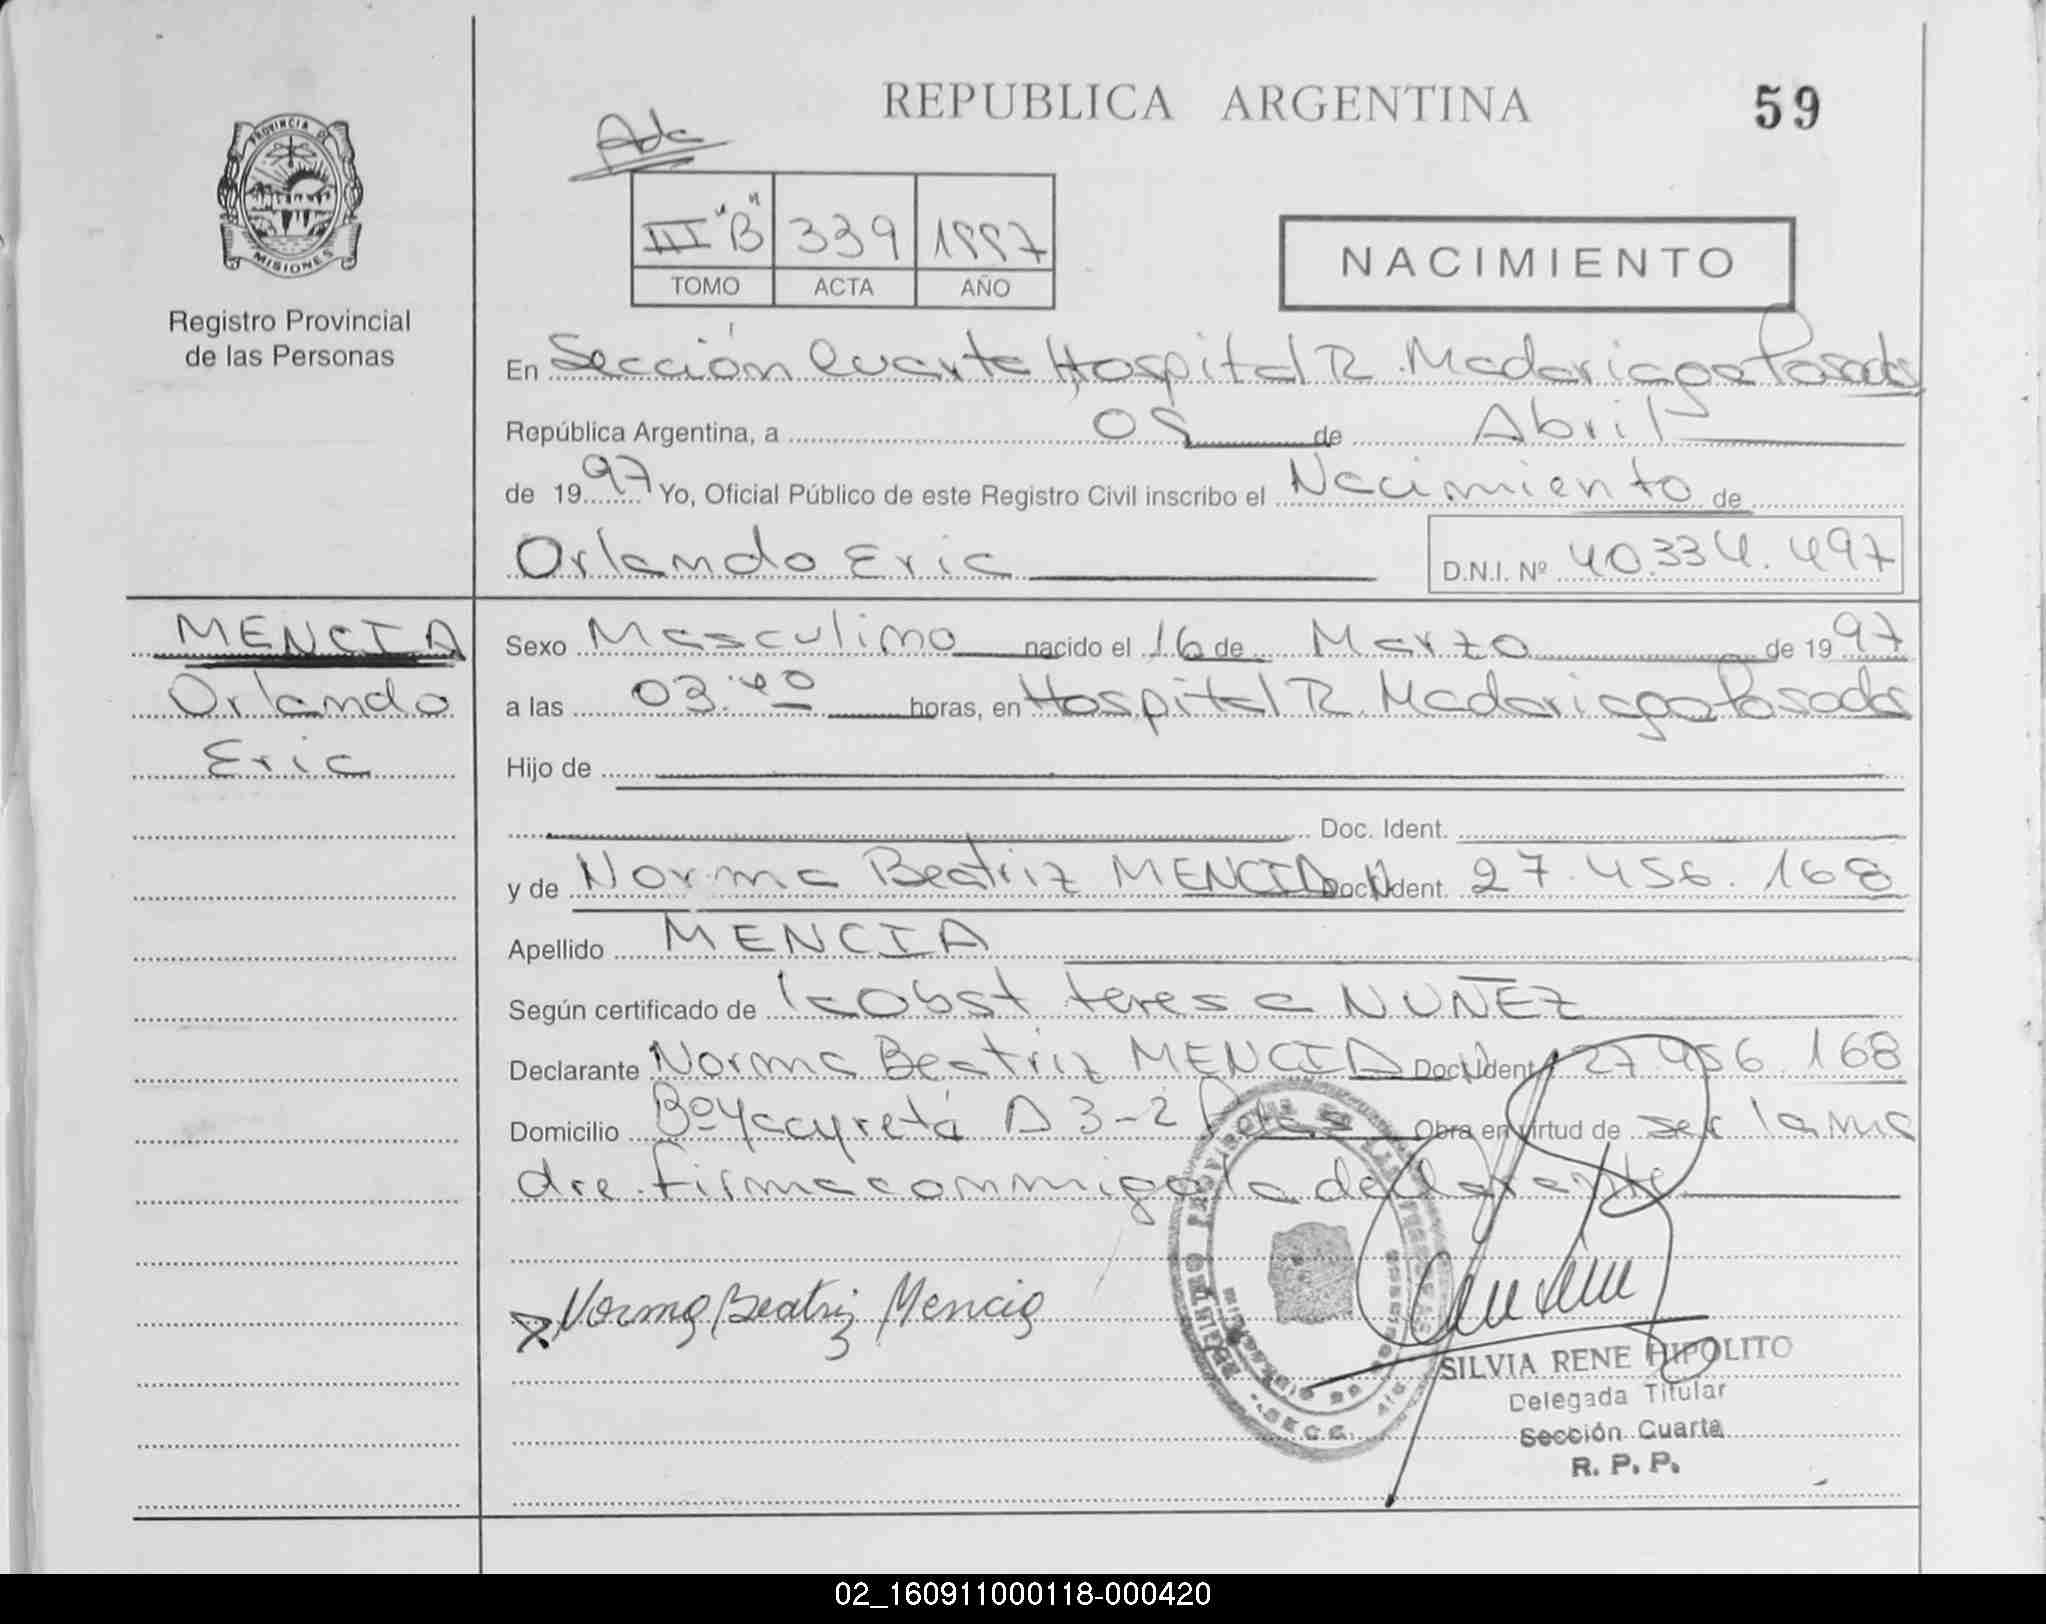 REPUBLICA ARGENTINA
59
PROVINCIA DE
MISIONES
Registro Provincial
de las Personas
III "B" 339 1997
TOMO ACTA AÑO
NACIMIENTO
En Sección Cuarta Hospital R. Madariaga Posadas
República Argentina, a 05 de Abril
de 1997 Yo, Oficial Público de este Registro Civil inscribo el Nacimiento de
Orlando Eric
D.N.I. Nº 40.334.497
MENCIA
Orlando
Eric
Sexo Masculino nacido el 16 de Marzo de 1997
a las 03:40 horas, en Hospital R. Madariaga Posadas
Hijo de
Doc. Ident.
y de Norma Beatriz MENCIA Doc. Ident. 27.456.168
Apellido MENCIA
Según certificado de Obst Teresa NUÑEZ
Declarante Norma Beatriz MENCIA Doc. Ident. 27.456.168
Domicilio Yacyretá A 3-2 Obra en virtud de ser la ma
dre. firma conmigo la declarante
Norma Beatriz Mencia
SILVIA RENE HIPOLITO
Delegada Titular
Sección Cuarta
R. P. P.
02_160911000118-000420